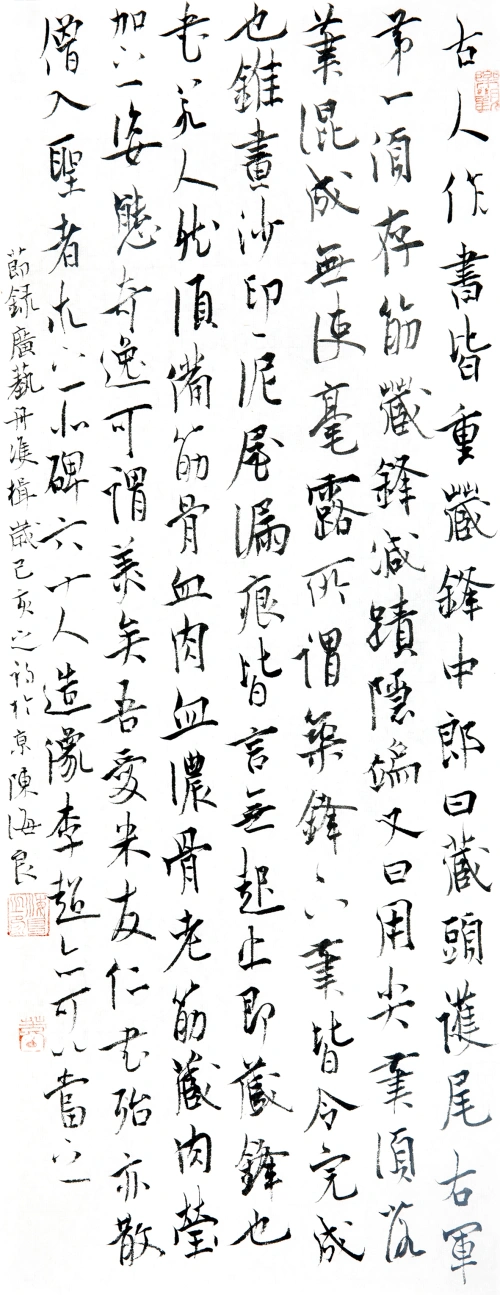 古人作書皆重藏鋒中郎曰藏頭護尾右軍
第一須存筋藏鋒滅蹟隱端又曰用尖筆須落
筆混成無使毫露所謂築鋒下筆皆令完成
也錐畫沙印印泥屋漏痕皆言無起止即藏鋒也
書若人然須備筋骨血肉血濃骨老筋藏肉瑩
加以姿態奇逸可謂美矣吾愛米友仁書殆亦散
僧入聖者求之北碑六十人造像李超亦可以當之
節錄廣藝舟雙楫歲己亥之於京陳海良